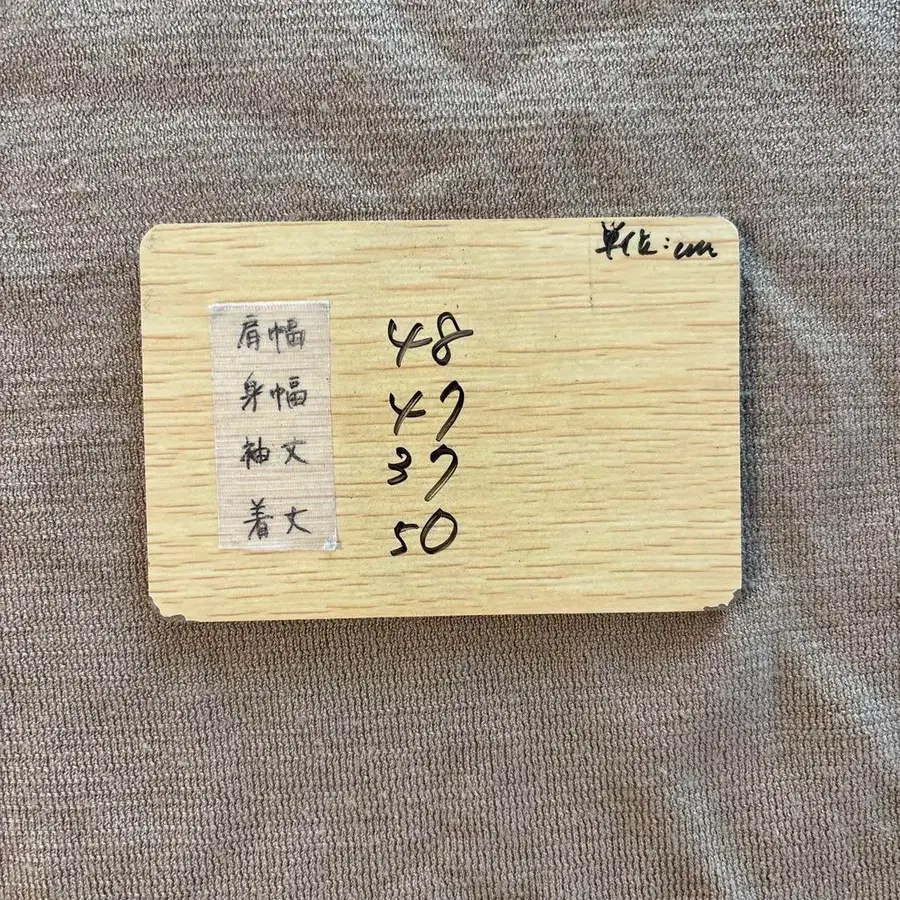 単位:cm
肩幅 48
身幅 47
袖丈 37
着丈 50